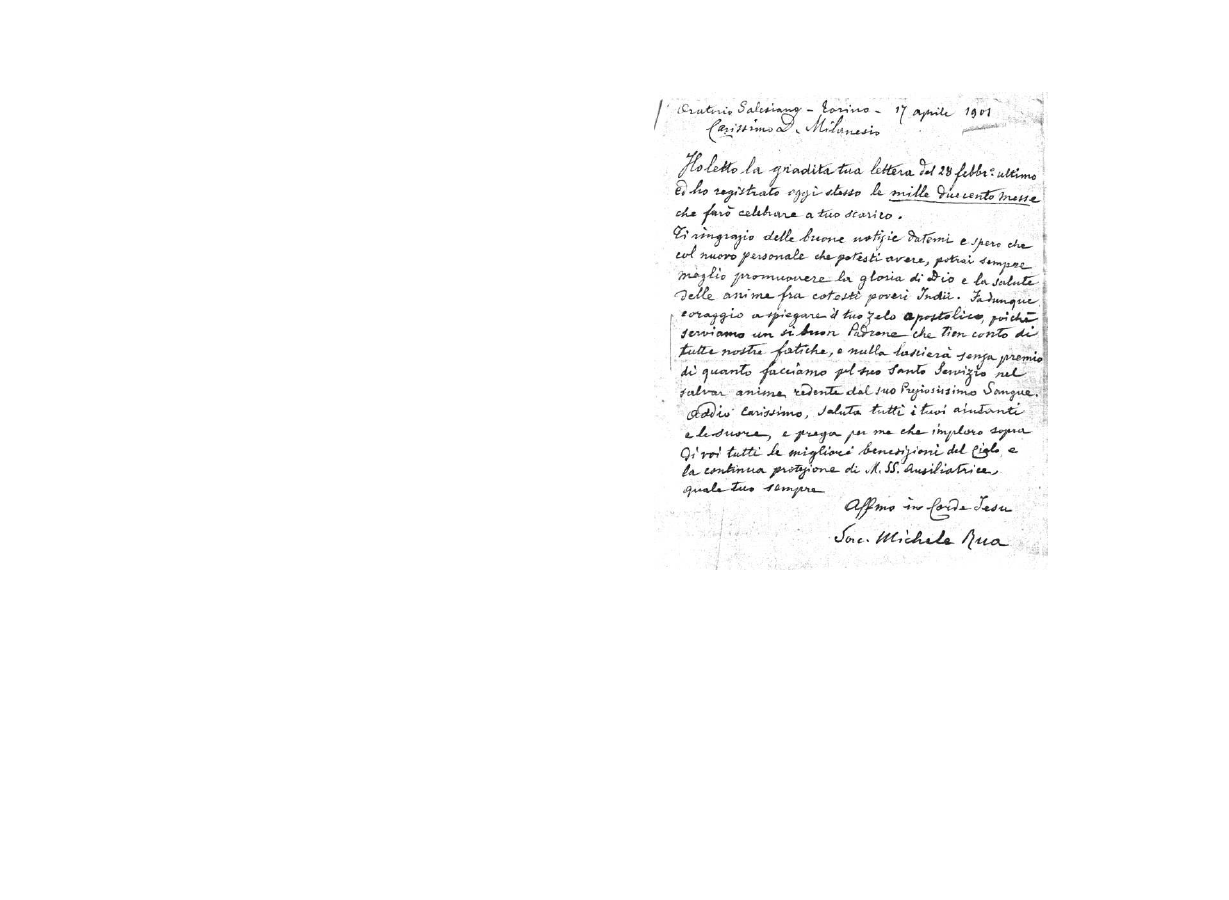 Oratorio Salesiano - Torino - 17 aprile 1901
Carissimo D. Milanesio
Ho letto la gradita tua lettera del 28 febbr° ultimo
ed ho registrato oggi stesso le mille duecento messe
che farò celebrare a tuo scarico.
Ti ringrazio delle buone notizie datemi e spero che
col nuovo personale che potesti avere, potrai sempre
meglio promuovere la gloria di Dio e la salute
delle anime fra cotesti poveri Indii. Fa dunque
coraggio a spiegare il tuo zelo apostolico, poichè
serviamo un sì buon Padrone che tien conto di
tutte nostre fatiche, e nulla lascierà senza premio
di quanto facciamo pel suo Santo Servizio nel
salvar anime redente dal suo Preziosissimo Sangue.
Addio carissimo, saluta tutti i tuoi aiutanti
e le suore, e prega per me che imploro sopra
di voi tutti le migliori benedizioni del Cielo e
la continua protezione di M. SS. Ausiliatrice,
quale tuo sempre
Affmo in Corde Jesu
Sac. Michele Rua